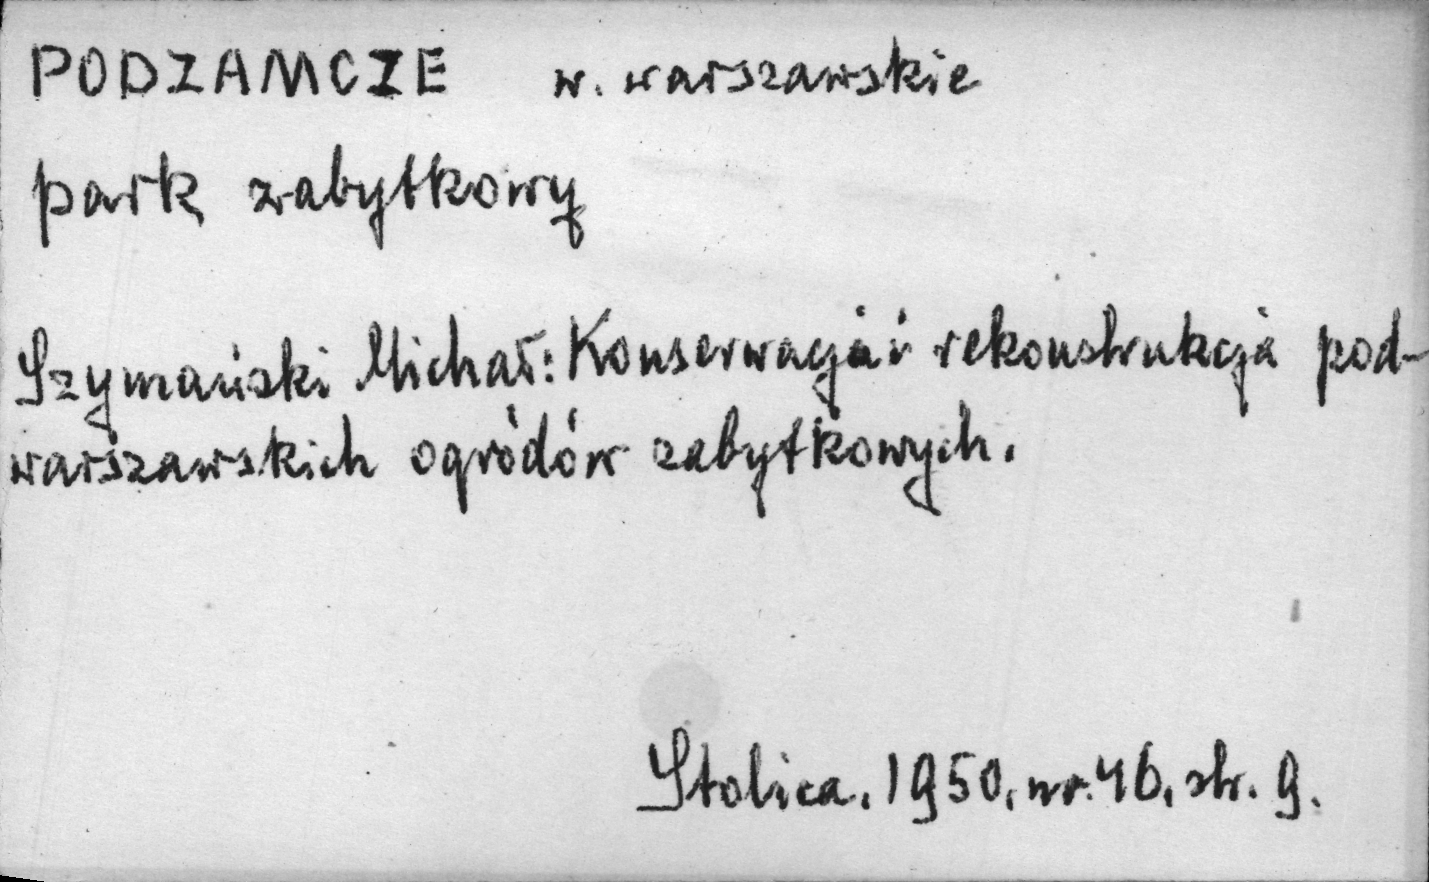 PODZAMCZE w. warszawskie
park zabytkowy
Szymański Michał: Konserwacja i rekonstrukcja pod-
warszawskich ogrodów zabytkowych.
Stolica. 1950. nr. 46. str. 9.